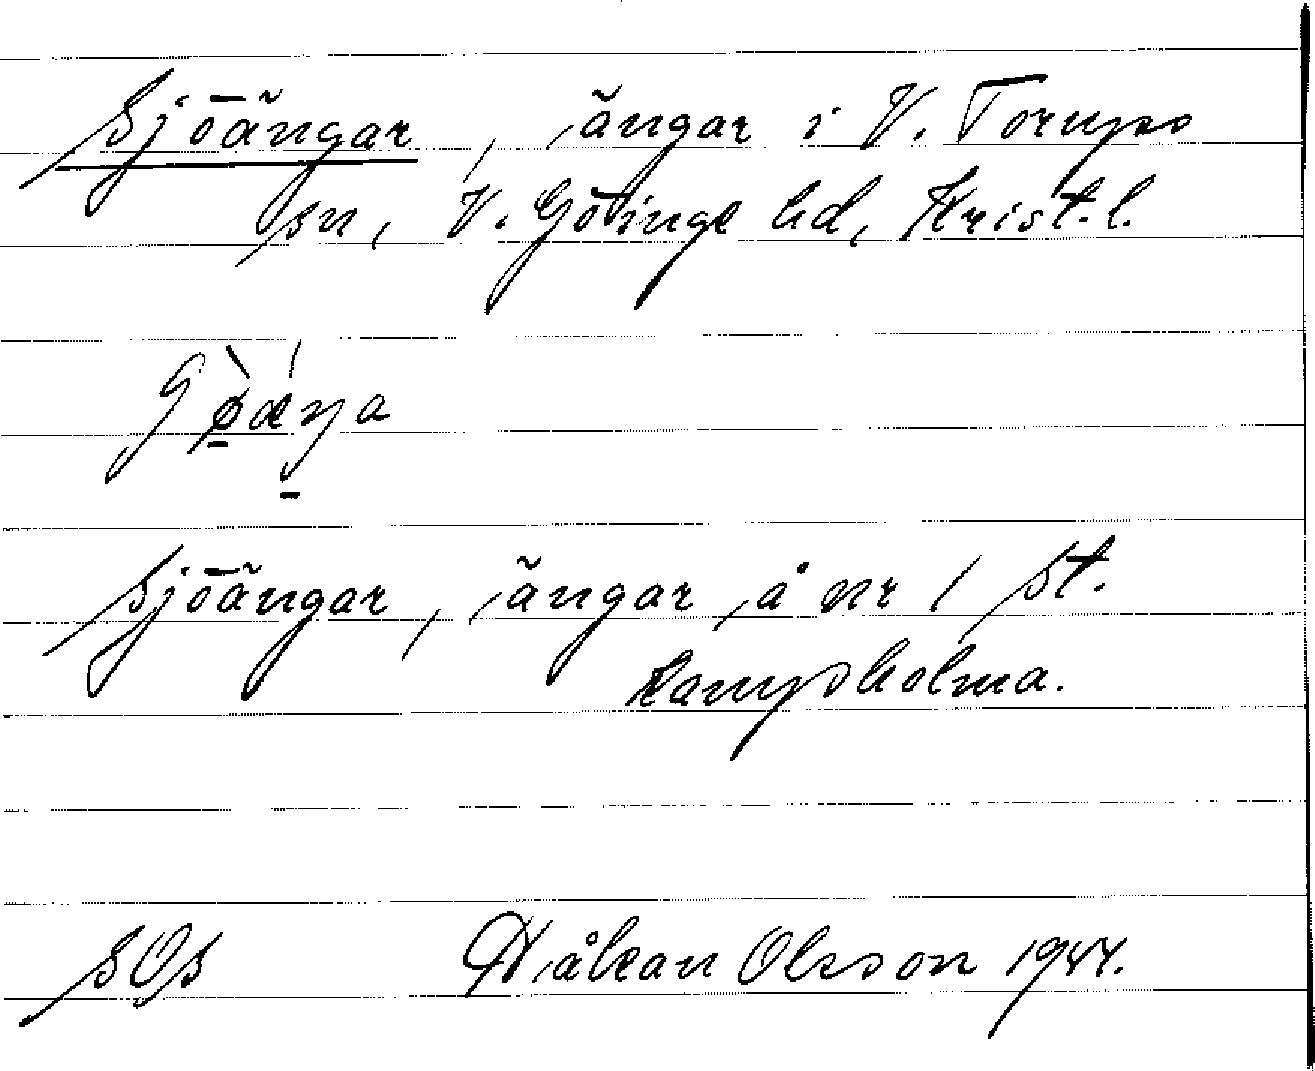 Sjöängar, ängar i V. Torups
sn, V. Göinge hd, Krist. l.
Sjöängar, ängar å nr 1 St.
Kampholma.
SOS Håkan Olsson 1944.